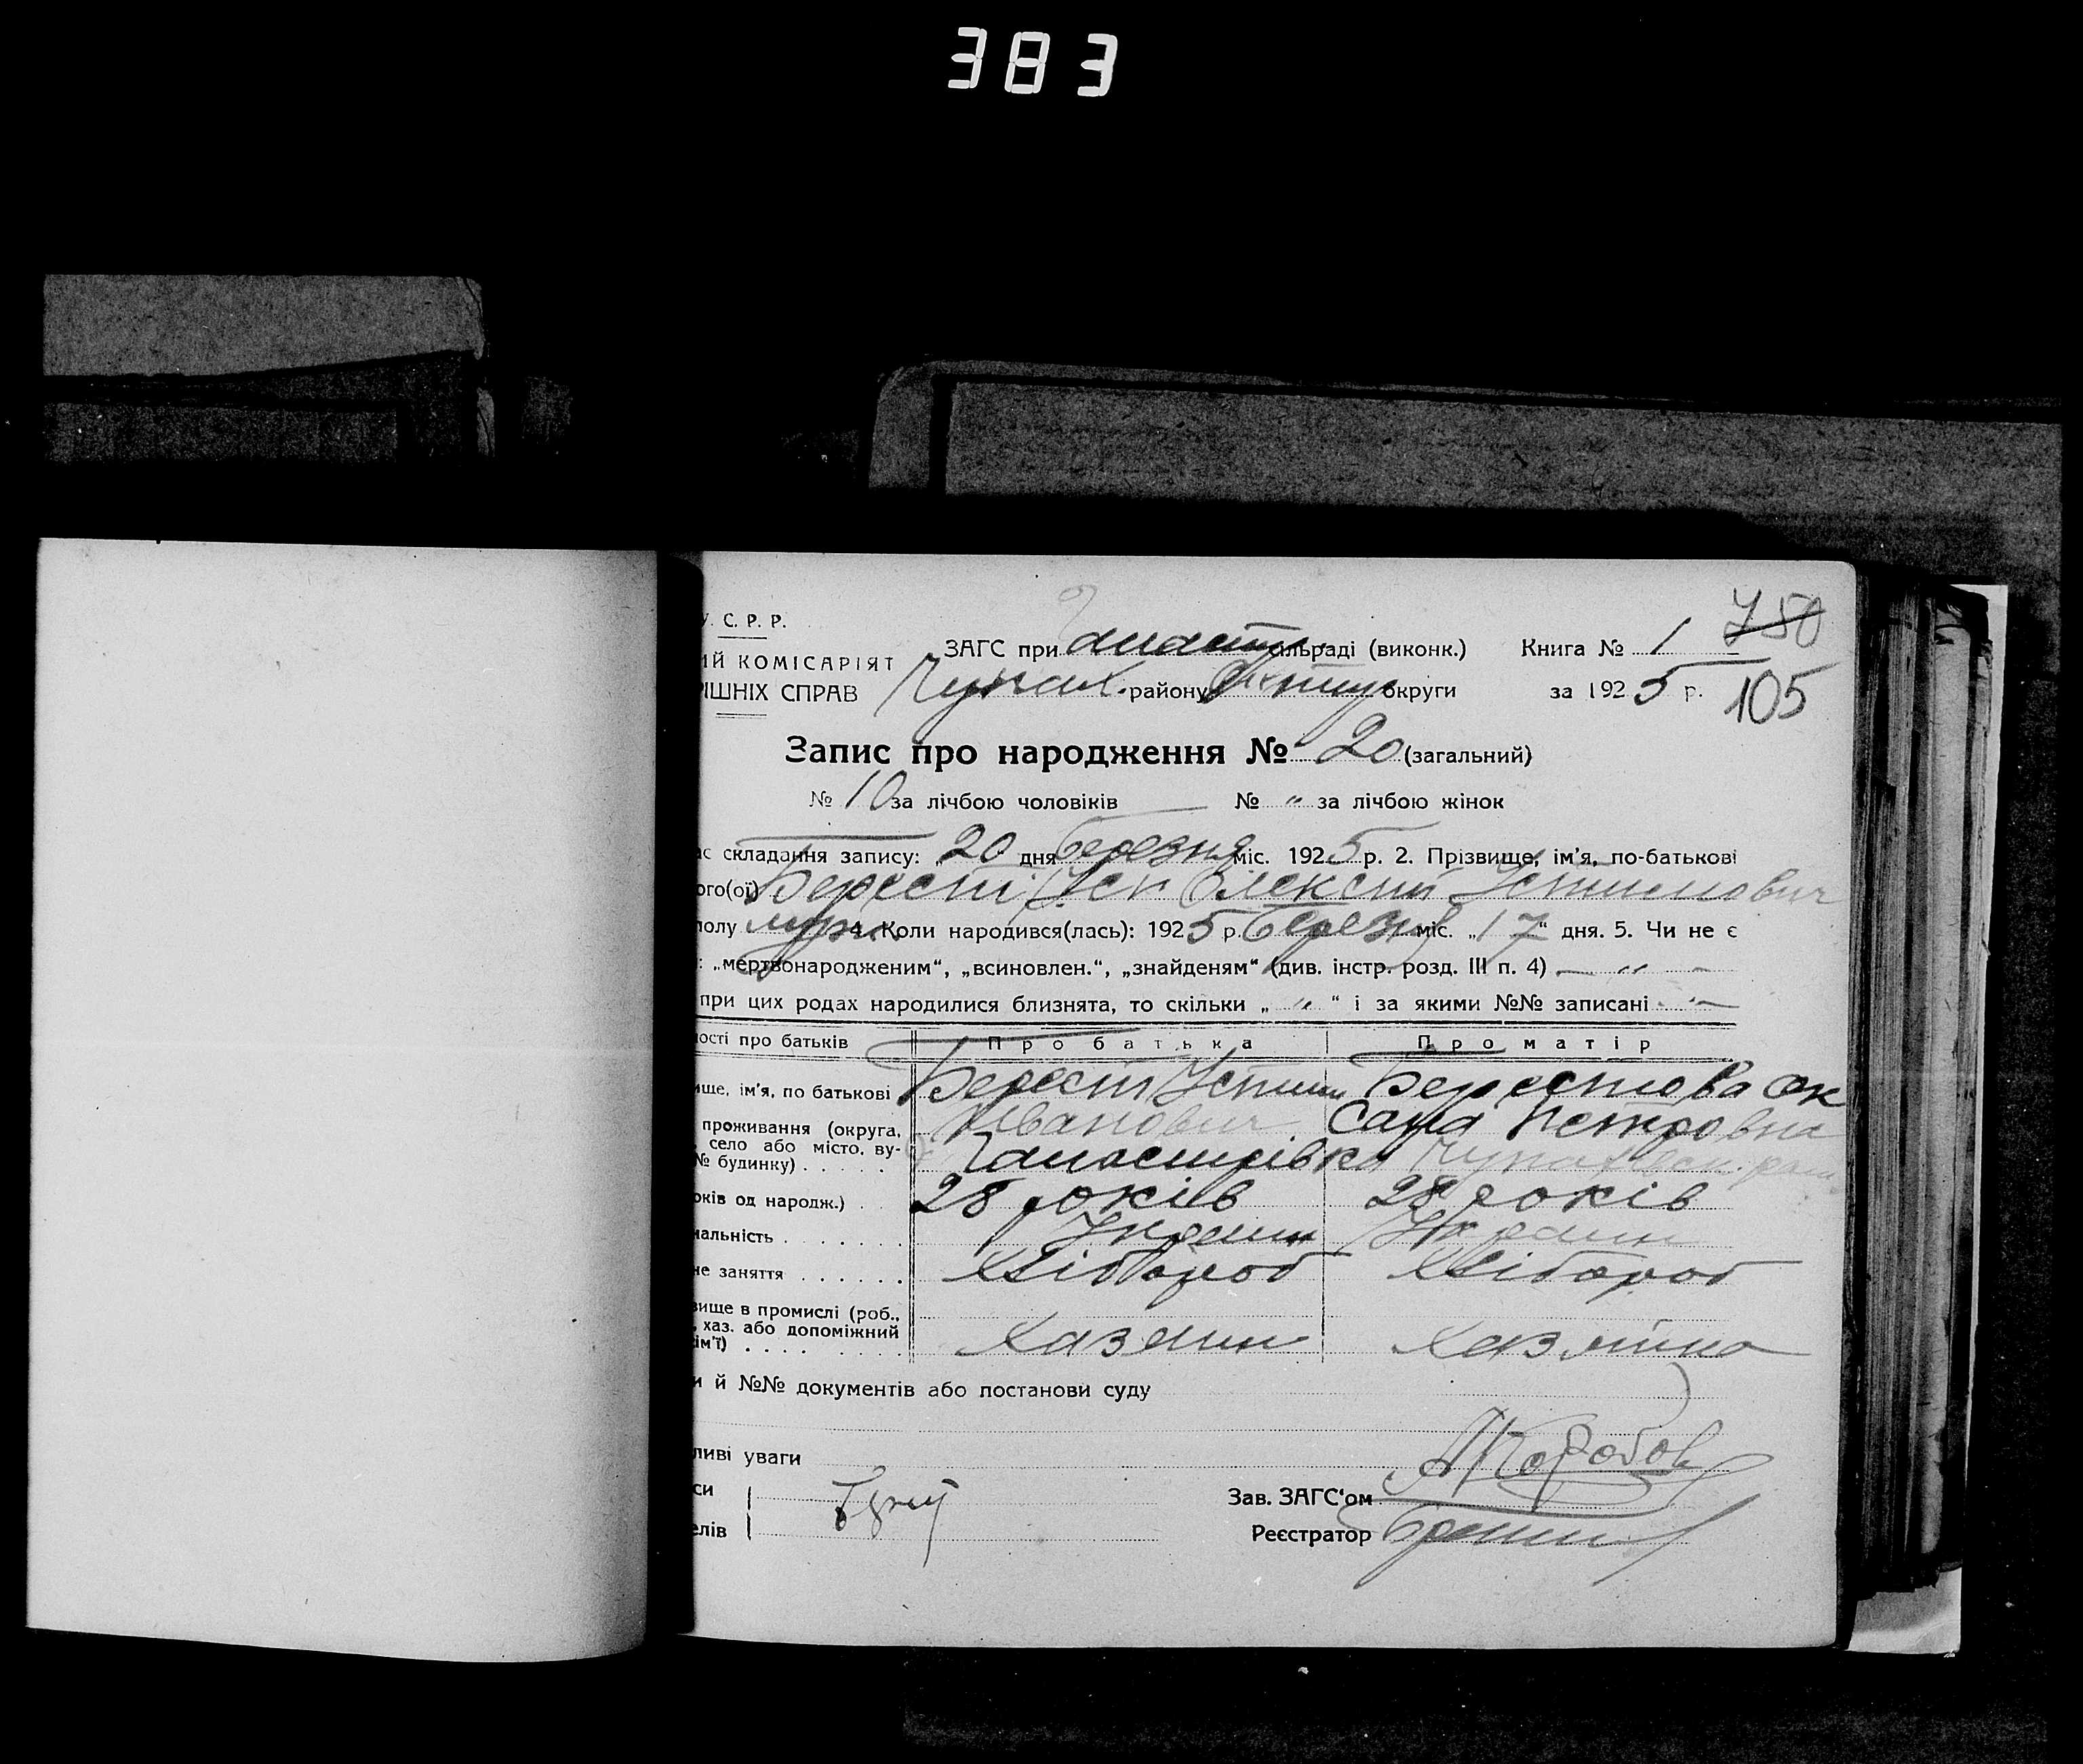 383
У. С. Р. Р.
750
ЗАГС при сільраді (виконк.) Книга № 1
ИЙ КОМІСАРІЯТ
РІШНІХ СПРАВ Чупах. району округи за 1925 р. 105
Запис про народження № 20 (загальний)
№ 10 за лічбою чоловіків № " за лічбою жінок
ас складання запису: „20" дня березня міс. 1925 р. 2. Прізвище, ім'я, по-батькові
ого(ої) Берест Олексій Устимович
полу муж. 4. Коли народився(лась): 1925 р. березня міс. „17" дня. 5. Чи не є
: „мертвонародженим", „всиновлен.", „знайденям" (див. інстр. розд. III п. 4) — " —
при цих родах народилися близнята, то скільки „ " " і за якими №№ записані - " —
ості про батьків Про батька Про матір
ище, ім'я, по батькові Берест Устим Берестова Ок
Іванович сана Петровна
проживання (округа,
, село або місто, ву-
№ будинку) . . . . .
оків од народж.) . . 28 років 28 років
нальність . . . . . . . Украин Украин
не заняття . . . . . . Хлібороб Хлібороб
вище в промислі (роб.,
, хаз. або допоміжний
ім'ї) . . . . . . . Хазяин Хазяйка
и й №№ документів або постанови суду
ливі уваги
си
Зав. ЗАГС'ом Коробов
елів Реєстратор